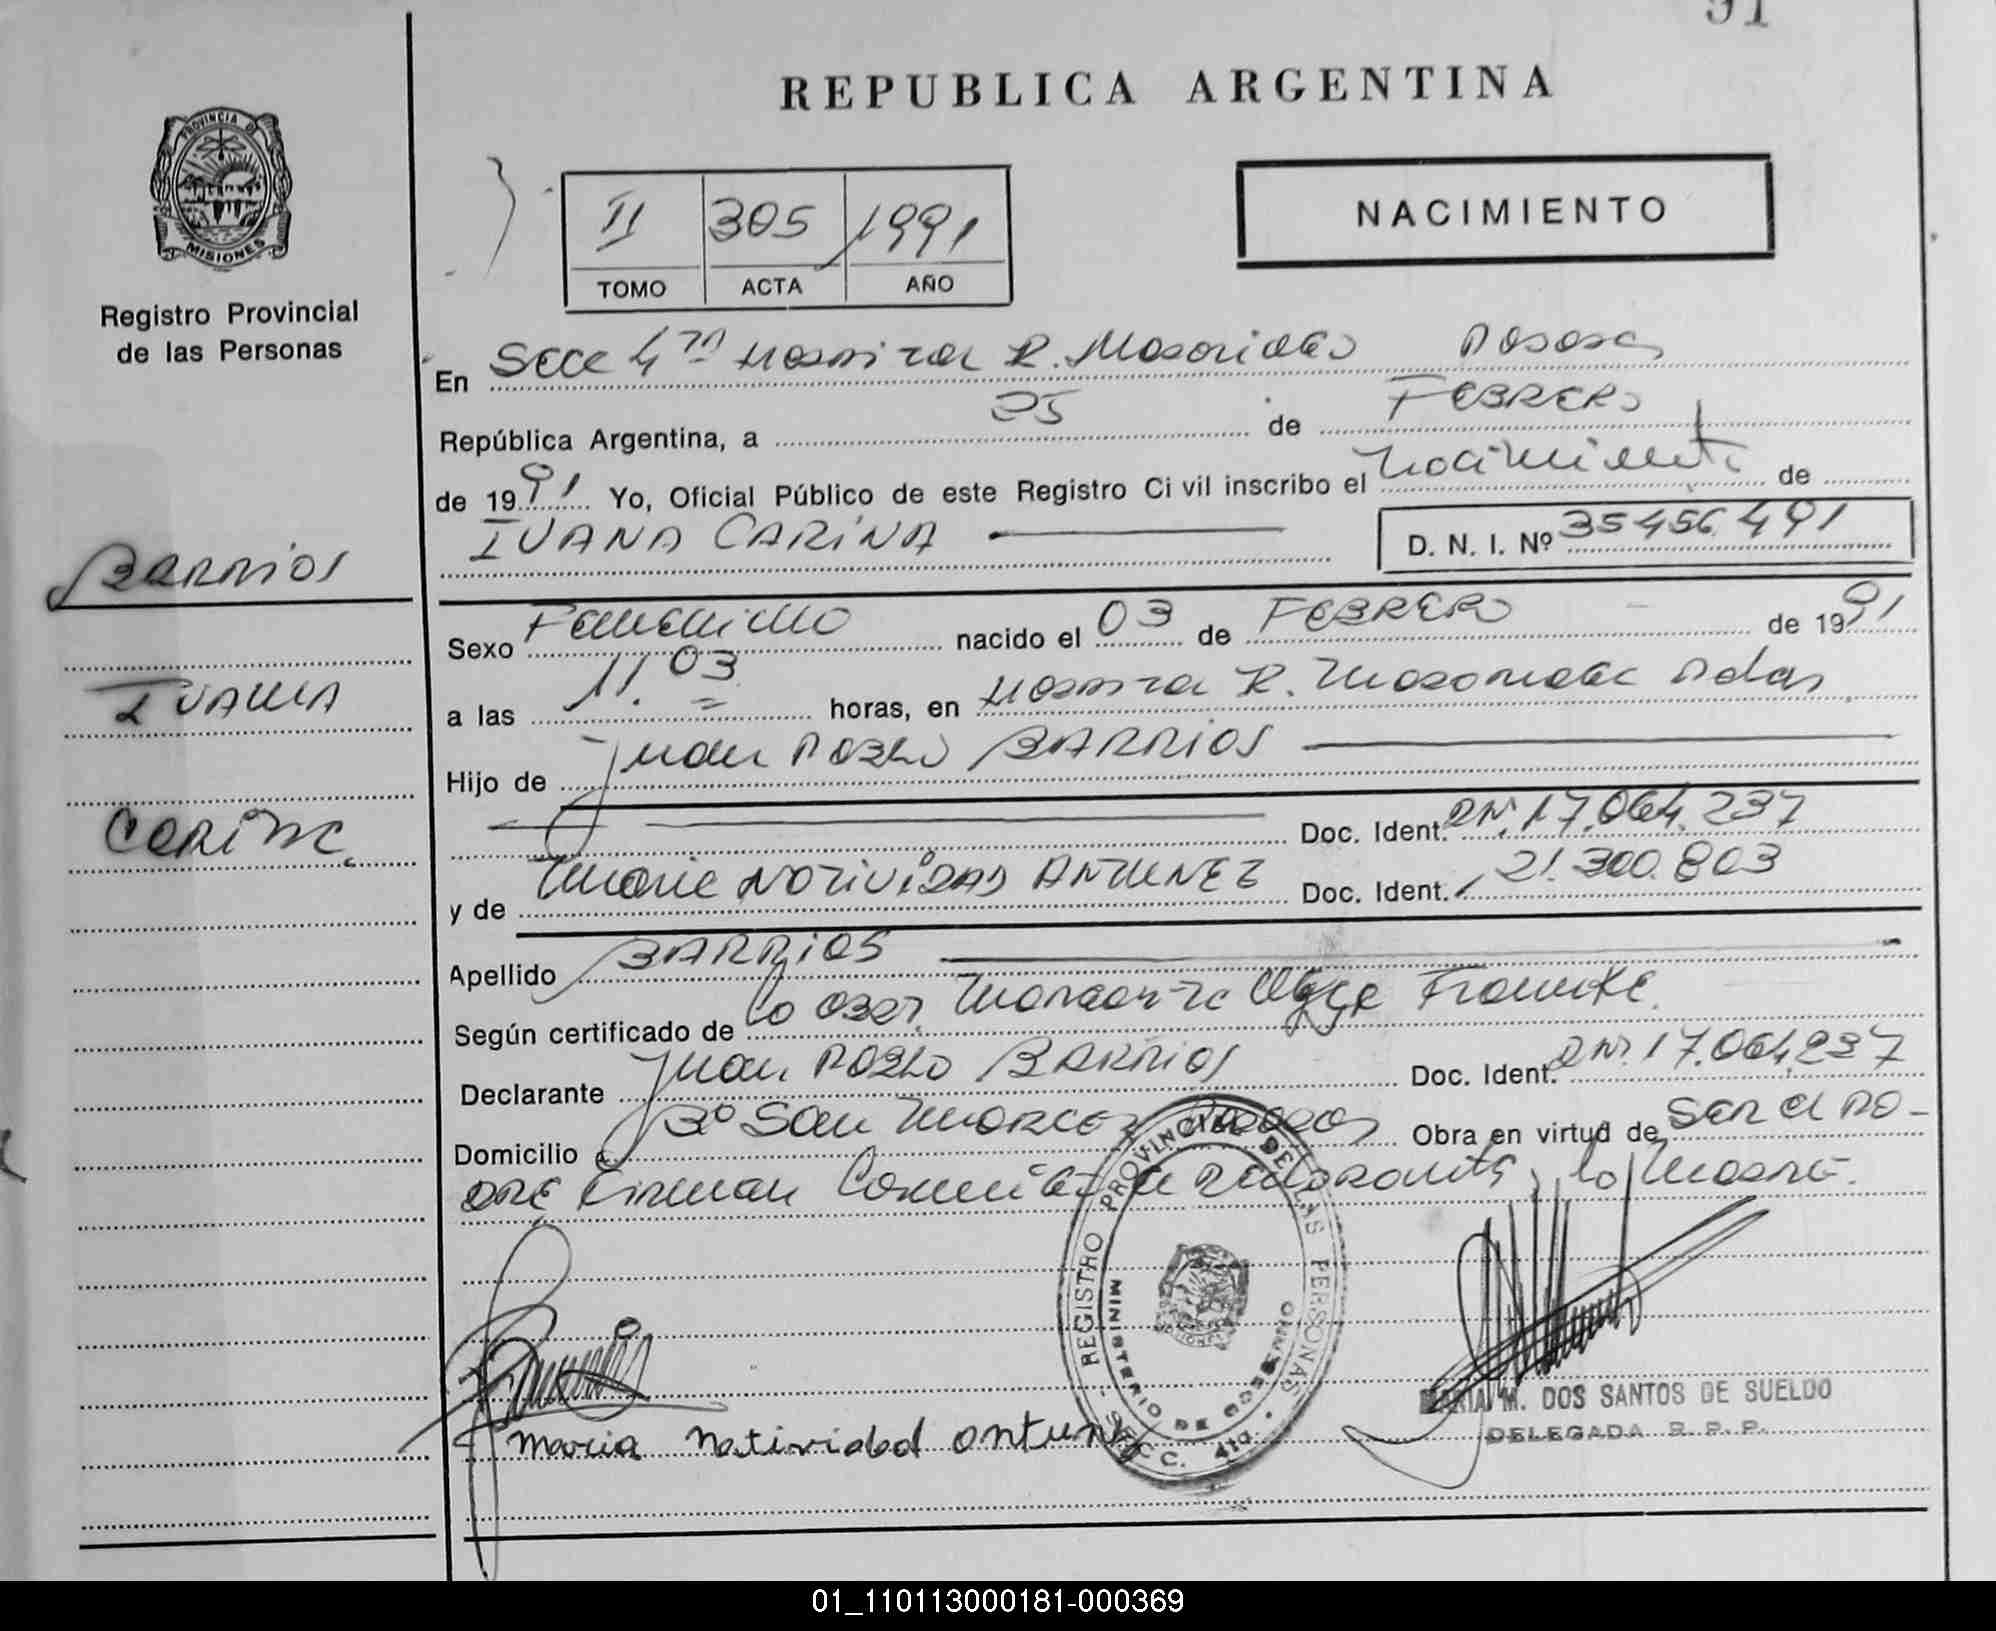 91
REPUBLICA ARGENTINA
PROVINCIA DE
MISIONES
Registro Provincial
de las Personas
II 305 1991
TOMO ACTA AÑO
NACIMIENTO
En Secc 4ta Hospital R. Madariaga Posadas
República Argentina, a 25 de FEBRERO
de 1991 Yo, Oficial Público de este Registro Civil inscribo el Nacimiento de
IVANA CARINA
D. N. I. Nº 35456.491
BARRIOS
IVANA
CARINA
Sexo Femenino nacido el 03 de FEBRERO de 1991
a las 11.03 horas, en Hospital R. Madariaga Pdas
Hijo de Juan Pablo BARRIOS
Doc. Ident. DNI. 17.064.237
y de Maria NATIVIDAD ANTUNEZ Doc. Ident. 21.300.803
Apellido BARRIOS
Según certificado de la Obst. Olga Franke
Declarante Juan PABLO BARRIOS Doc. Ident. DNI. 17.064.237
Domicilio Bº San Marcos Posadas Obra en virtud de Ser el PA-
DRE Firman Conmigo el Declarante y la Madre.
REGISTRO PROVINCIAL DE LAS PERSONAS
MINISTERIO DE GOBIERNO
SECC. 4ta.
maria natividad antunez
MARIA M. DOS SANTOS DE SUELDO
DELEGADA R. P. P.
01_110113000181-000369